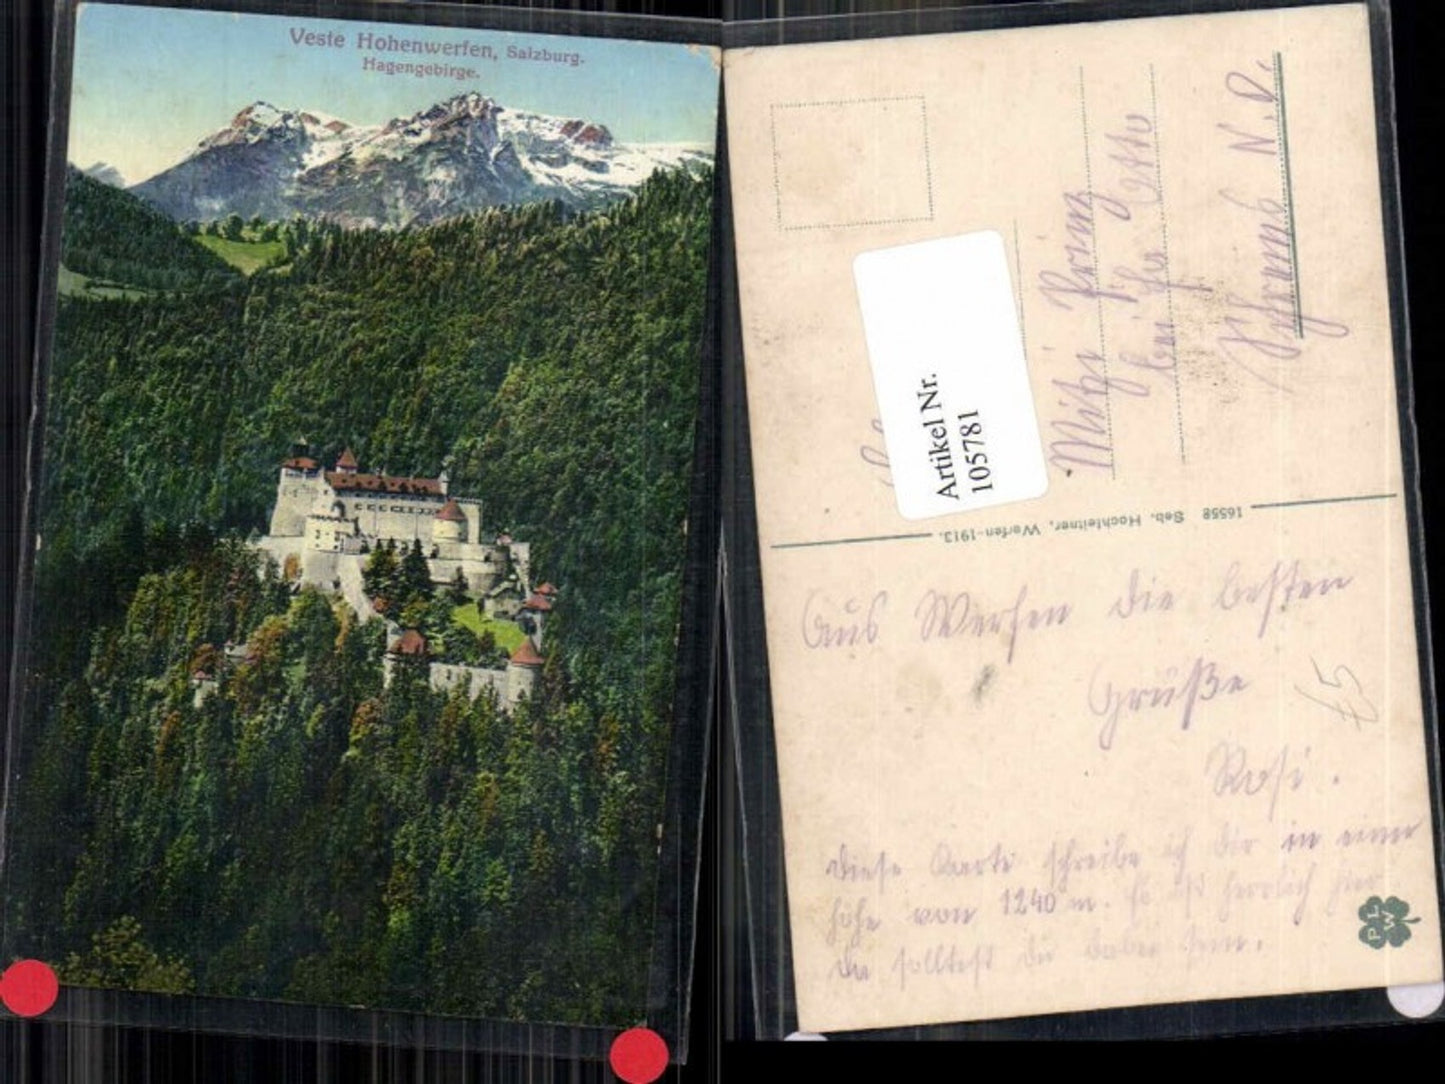 Veste Hohenwerfen, Salzburg.
Hagengebirge.
Artikel Nr.
105781
Mitzi Prinz
bei
Schrems N.Ö.
16558 Seb. Hochleitner, Werfen-1913.
Aus Werfen die besten
Grüße
Rosi.
£5
diese Karte schreibe ich dir in einer
höhe von 1240 m. Es ist herrlich hier
da solltest du dabei sein.
PLM